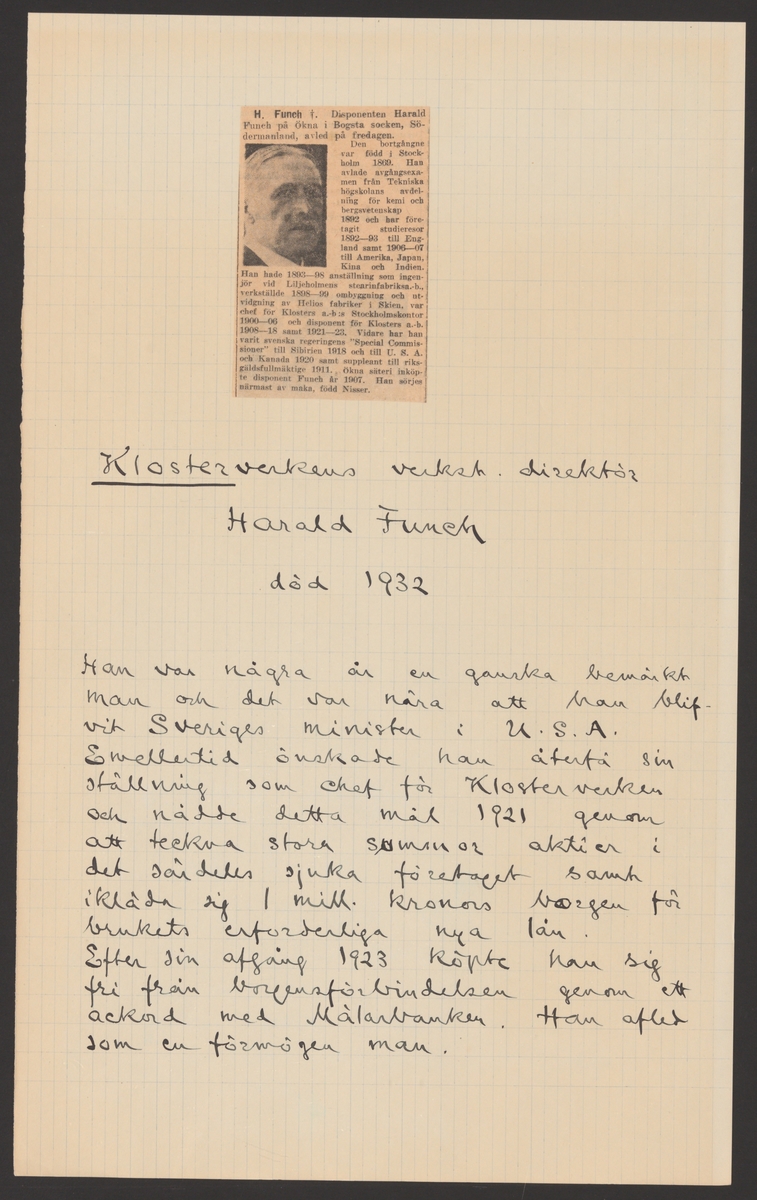 H. Funch †. Disponenten Harald
Funch på Ökna i Bogsta socken, Sö-
dermanland, avled på fredagen.
Den bortgångne
var född i Stock-
holm 1869. Han
avlade avgångsexa-
men från Tekniska
högskolans avdel-
ning för kemi och
bergsvetenskap
1892 och har före-
tagit studieresor
1892—93 till Eng-
land samt 1906—07
till Amerika, Japan,
Kina och Indien.
Han hade 1893—98 anställning som ingen-
jör vid Liljeholmens stearinfabriksa.-b.,
verkställde 1898—99 ombyggning och ut-
vidgning av Helios fabriker i Skien, var
chef för Klosters a.-b:s Stockholmskontor
1900—06 och disponent för Klosters a.-b.
1908—18 samt 1921—23. Vidare har han
varit svenska regeringens "Special Commis-
sioner" till Sibirien 1918 och till U. S. A.
och Kanada 1920 samt suppleant till riks-
gäldsfullmäktige 1911. Ökna säteri inköp-
te disponent Funch år 1907. Han sörjes
närmast av maka, född Nisser.
Klosterverkens verkst. direktör
Harald Funch
död 1932
Han var några år en ganska bemärkt
man och det var nära att han blif-
vit Sveriges minister i U.S.A.
Emellertid önskade han återfå sin
ställning som chef för Klosterverken
och nådde detta mål 1921 genom
att teckna stora summor aktier i
det särdeles sjuka företaget samt
ikläda sig 1 mill. kronors borgen för
brukets erforderliga nya lån.
Efter sin afgång 1923 köpte han sig
fri från borgensförbindelsen genom ett
ackord med Mälarbanken. Han afled
som en förmögen man.